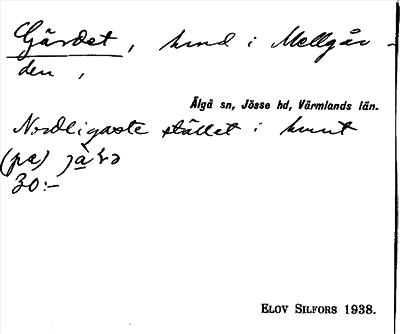 Gärdet, hmd i Mellgår-
den,
Älgå sn, Jösse hd, Värmlands län.
Nordligaste stället i hmnt
(pa)
30:-
ELOV SILFORS 1938.